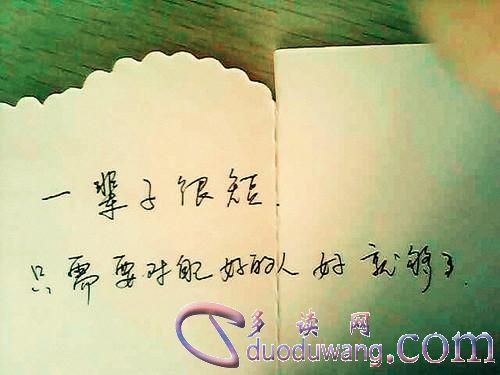 一辈子很短.
只需要对自己好的人好就够了.
多读网
duoduwang.com